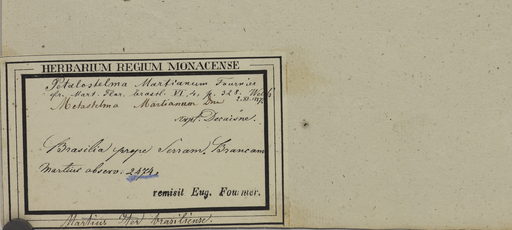 HERBARIUM REGIUM MONACENSE
Petalostelma Martianum Fournier
Mart. Flor. brasil. VI, 4, p. 328.
Metastelma Martianum Dne
Decaisne.
Brasilia prope Serram Brancam
Martius observ. 2474.
remisit Eug. Fournier.
Martius Iter brasiliense.